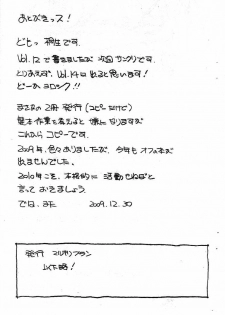 あとがきっス!
どもっ 桐生です.
Vol.12で書きましたが 次回サンクリで
とりあえず、Vol.14は出ると思います!
どーか ヨロシク!!
まさかの2冊発行(コピーだけど)
製本作業を考えると 嫌になりますが
これからコピーです.
2009年、色々ありましたが、今年もオフ本が
出ませんでした.
2010年こそ、本格的に活動せねばと
言っておきましょう.
では、また 2009.12.30
発行 マルホンプラン
以下略!